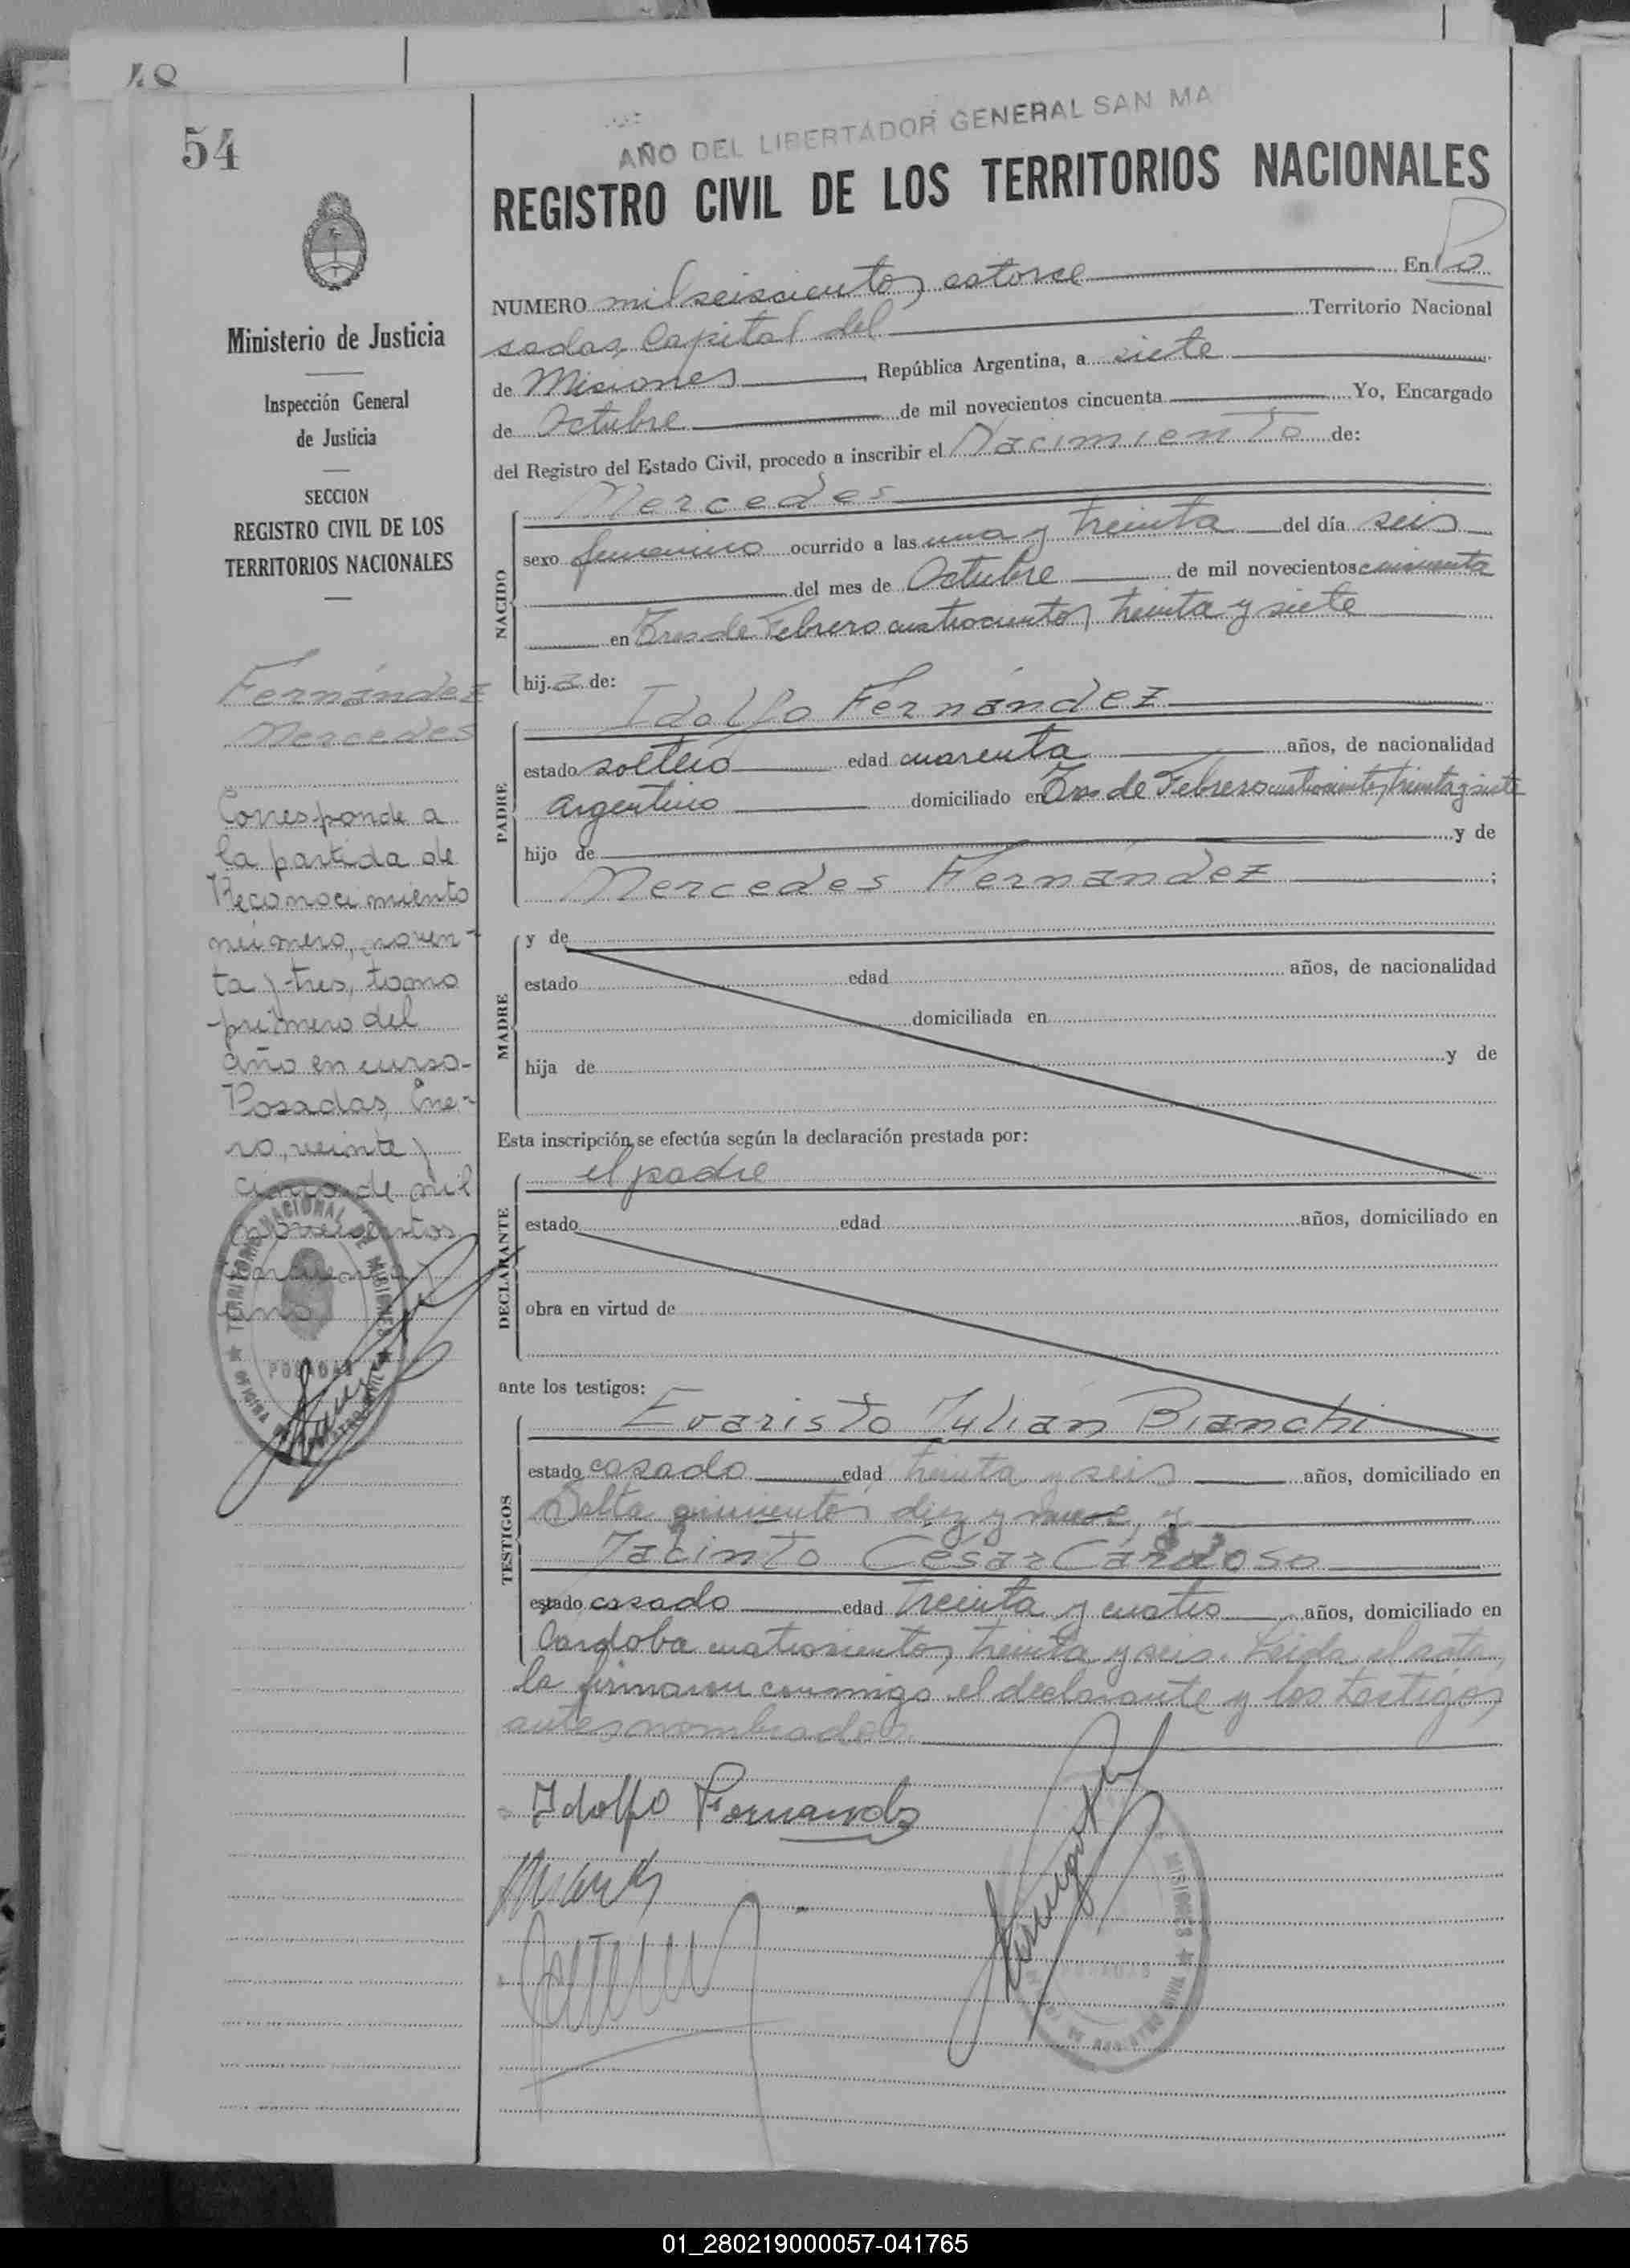 48
54
AÑO DEL LIBERTADOR GENERAL SAN MA
REGISTRO CIVIL DE LOS TERRITORIOS NACIONALES
Ministerio de Justicia
Inspección General
de Justicia
SECCION
REGISTRO CIVIL DE LOS
TERRITORIOS NACIONALES
Fernández
Mercedes
Corresponde a
la partida de
Reconocimiento
número, noven-
ta y tres, tomo
primero del
año en curso-
Posadas, Ene-
ro, veinte y
cinco de mil
novecientos
cincuenta y
uno
TERRITORIO NACIONAL DE MISIONES
POSADAS
OFICINA
NUMERO mil seiscientos catorce En Po
sadas Capital del Territorio Nacional
de Misiones, República Argentina, a siete
de Octubre de mil novecientos cincuenta Yo, Encargado
del Registro del Estado Civil, procedo a inscribir el Nacimiento de:
NACIDO
Mercedes
sexo femenino ocurrido a las una y treinta del día seis
del mes de Octubre de mil novecientos cincuenta
en Tres de Febrero cuatrocientos treinta y siete
hija de:
PADRE
Idolfo Fernández
estado soltero edad cuarenta años, de nacionalidad
argentino domiciliado en Tres de Febrero cuatrocientos treinta y siete
hijo de y de
Mercedes Fernández ;
MADRE
y de
estado edad años, de nacionalidad
domiciliada en
hija de y de
Esta inscripción, se efectúa según la declaración prestada por:
el padre
DECLARANTE
estado edad años, domiciliado en
obra en virtud de
ante los testigos:
TESTIGOS
Evaristo Julián Bianchi
estado casado edad treinta y seis años, domiciliado en
Salta quinientos diez y nueve, y
Jacinto César Cardoso
estado casado edad treinta y cuatro años, domiciliado en
Cordoba cuatrocientos treinta y seis. Leida el acta,
la firmaron conmigo el declarante y los testigos
antes nombrados.
Idolfo Fernandz
MISIONES
01_280219000057-041765